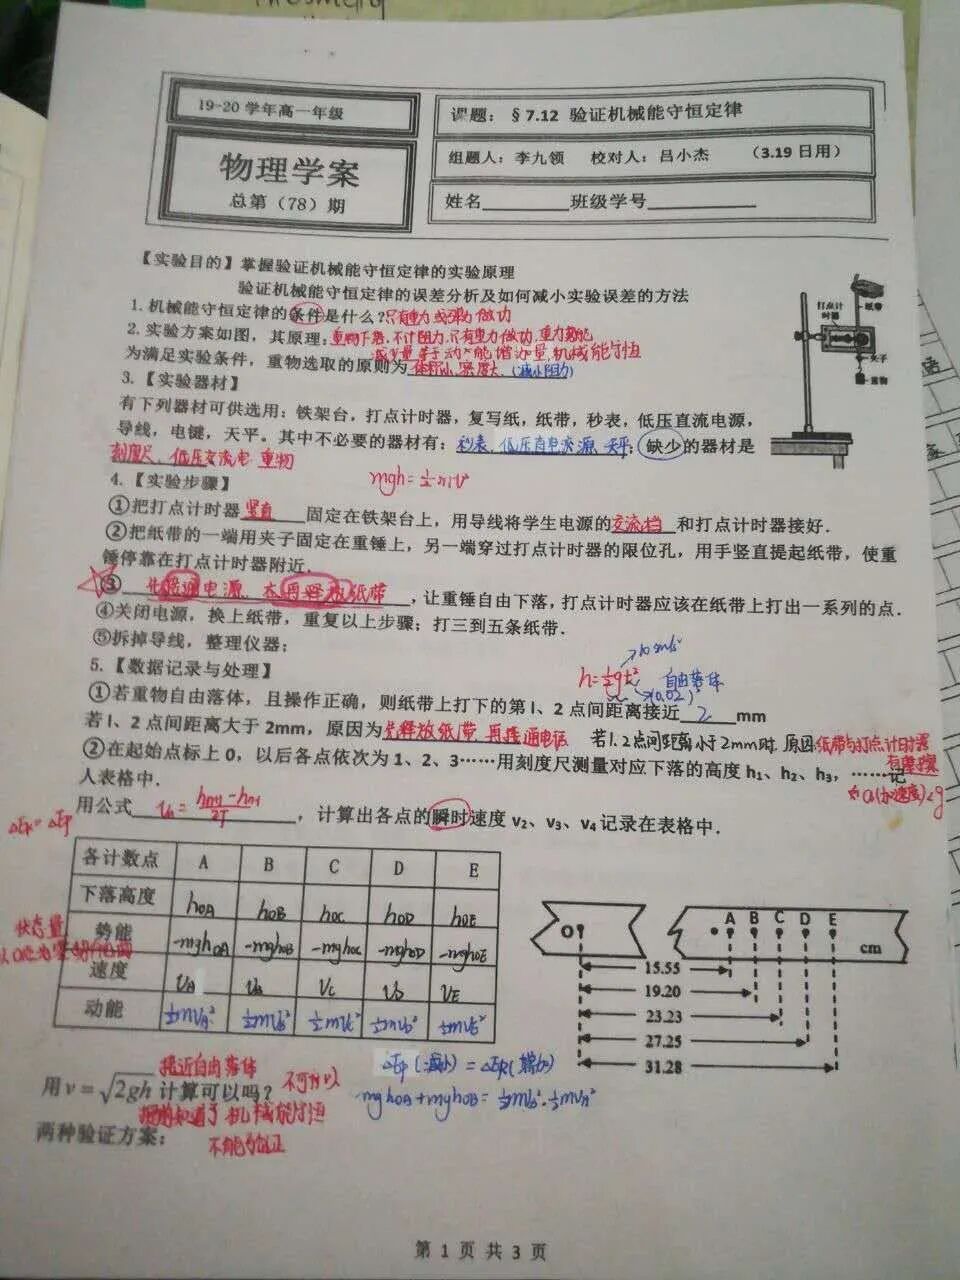 19-20 学年高一年级
物理学案
总第（78）期
课题：§7.12 验证机械能守恒定律
组题人：李九领 校对人：吕小杰 （3.19 日用）
姓名________班级学号________
【实验目的】掌握验证机械能守恒定律的实验原理
验证机械能守恒定律的误差分析及如何减小实验误差的方法
1. 机械能守恒定律的条件是什么？只有重力或弹力做功
2. 实验方案如图，其原理：重物下落.不计阻力.只有重力做功.重力势能
减少量等于动能增加量.机械能守恒
为满足实验条件，重物选取的原则为体积小.密度大.(减小阻力)
打点计时器
纸带
夹子
重物
3. 【实验器材】
有下列器材可供选用：铁架台，打点计时器，复写纸，纸带，秒表，低压直流电源，
导线，电键，天平。其中不必要的器材有：秒表.低压直流电源.天平；缺少的器材是
刻度尺、低压交流电 重物
mgh=½mv²
4. 【实验步骤】
①把打点计时器竖直固定在铁架台上，用导线将学生电源的交流挡和打点计时器接好．
②把纸带的一端用夹子固定在重锤上，另一端穿过打点计时器的限位孔，用手竖直提起纸带，使重
锤停靠在打点计时器附近．
③先接通电源、太再释放纸带，让重锤自由下落，打点计时器应该在纸带上打出一系列的点．
④关闭电源，换上纸带，重复以上步骤；打三到五条纸带．
⑤拆掉导线，整理仪器；
5. 【数据记录与处理】
h=½gt² 自由落体
(0.02)²
①若重物自由落体，且操作正确，则纸带上打下的第 l、2 点间距离接近 2 mm
若 l、2 点间距离大于 2mm，原因为先释放纸带 再接通电源 若1.2点间距离小于2mm时.原因:纸带与打点计时器
有摩擦
②在起始点标上 0，以后各点依次为 1、2、3……用刻度尺测量对应下落的高度 h₁、h₂、h₃，……记
人表格中．
a(加速度)<g
用公式________，计算出各点的瞬时速度 v₂、v₃、v₄ 记录在表格中．
ΔEk=ΔEp
各计数点 A B C D E
下落高度 hOA hOB hOC hOD hOE
势能 -mghOA -mghOB -mghOC -mghOD -mghOE
状态量
速度 VA VB VC VD VE
动能 ½mVA² ½mVB² ½mVC² ½mVD² ½mVE²
O A B C D E
cm
15.55
19.20
23.23
27.25
31.28
ΔEp(减小)=ΔEk(增加)
接近自由落体
用 v=√2gh 计算可以吗？不可以
机械能守恒
两种验证方案：
不能验证
第 1 页 共 3 页